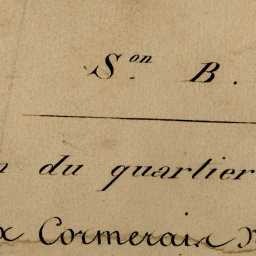 S.on B.
n du quartier
x Cormerais